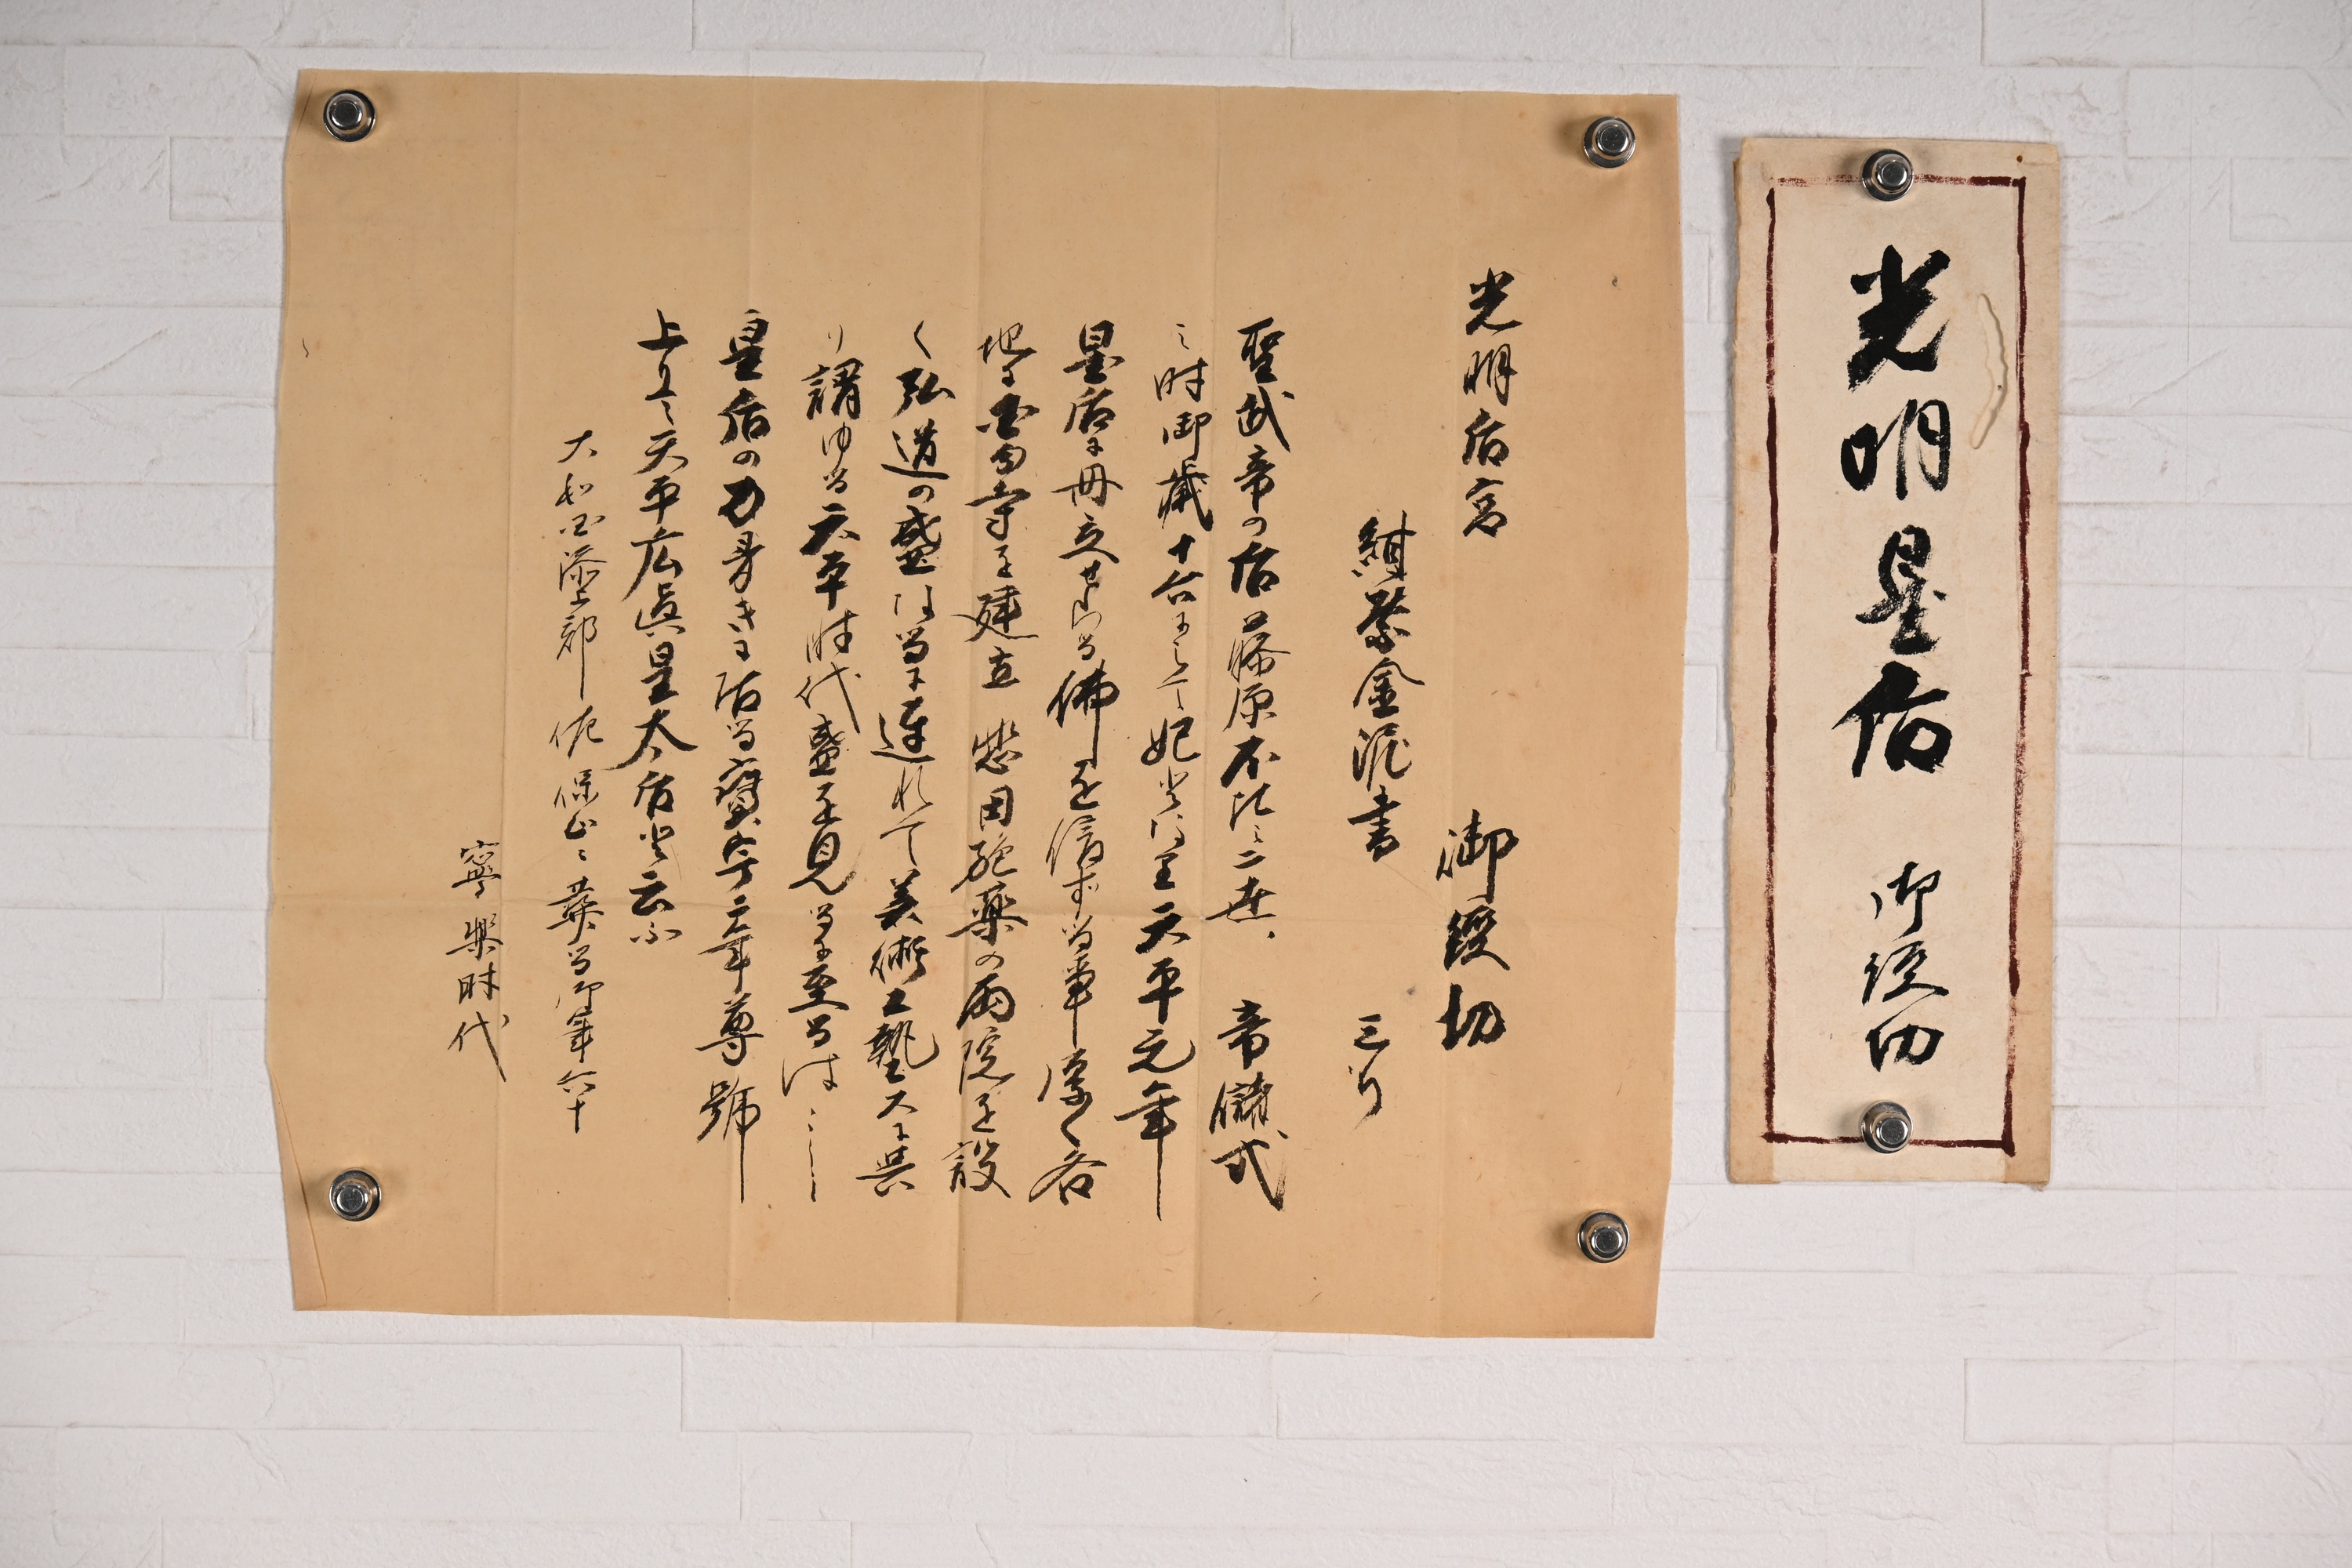 光明皇后　御経切
光明后宮　御経切
紺紫金泥書　三行
聖武帝の后藤原不比ミ二世、帝儲弐
ミ時御歳十六にして妃となる天平元年
皇后に冊立せらる佛を信ずる事厚く各
地に国分寺を建立 悲田施薬の両院を設
く弘道の盛なるに連れて美術工藝大に興
り謂ゆる天平時代盛を見るに至るは
皇后の力多きに居る寶字二年尊號
上りて天平応真皇太后と云ふ
大和国添上郡佐保山ミ葬る御年六十
寧樂時代